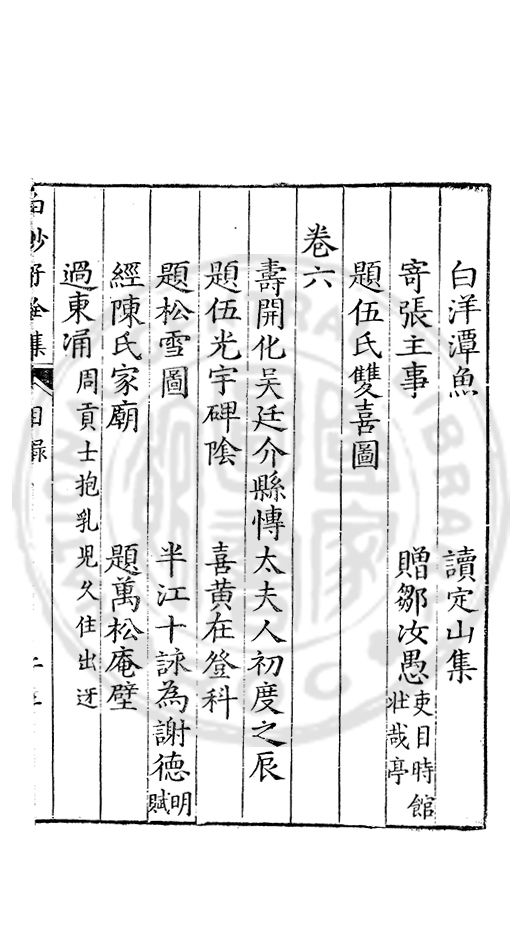 白洋潭魚 讀定山集
寄張主事 贈鄒汝愚吏目時館壯哉亭
題伍氏雙喜圖
卷六
壽開化吳廷介縣博太夫人初度之辰
題伍光宇碑陰 喜黃在登科
題松雪圖 半江十詠為謝德明賦
經陳氏家廟 題萬松庵壁
過東涌周貢士抱乳兒久住出迓
白沙子全集 目錄